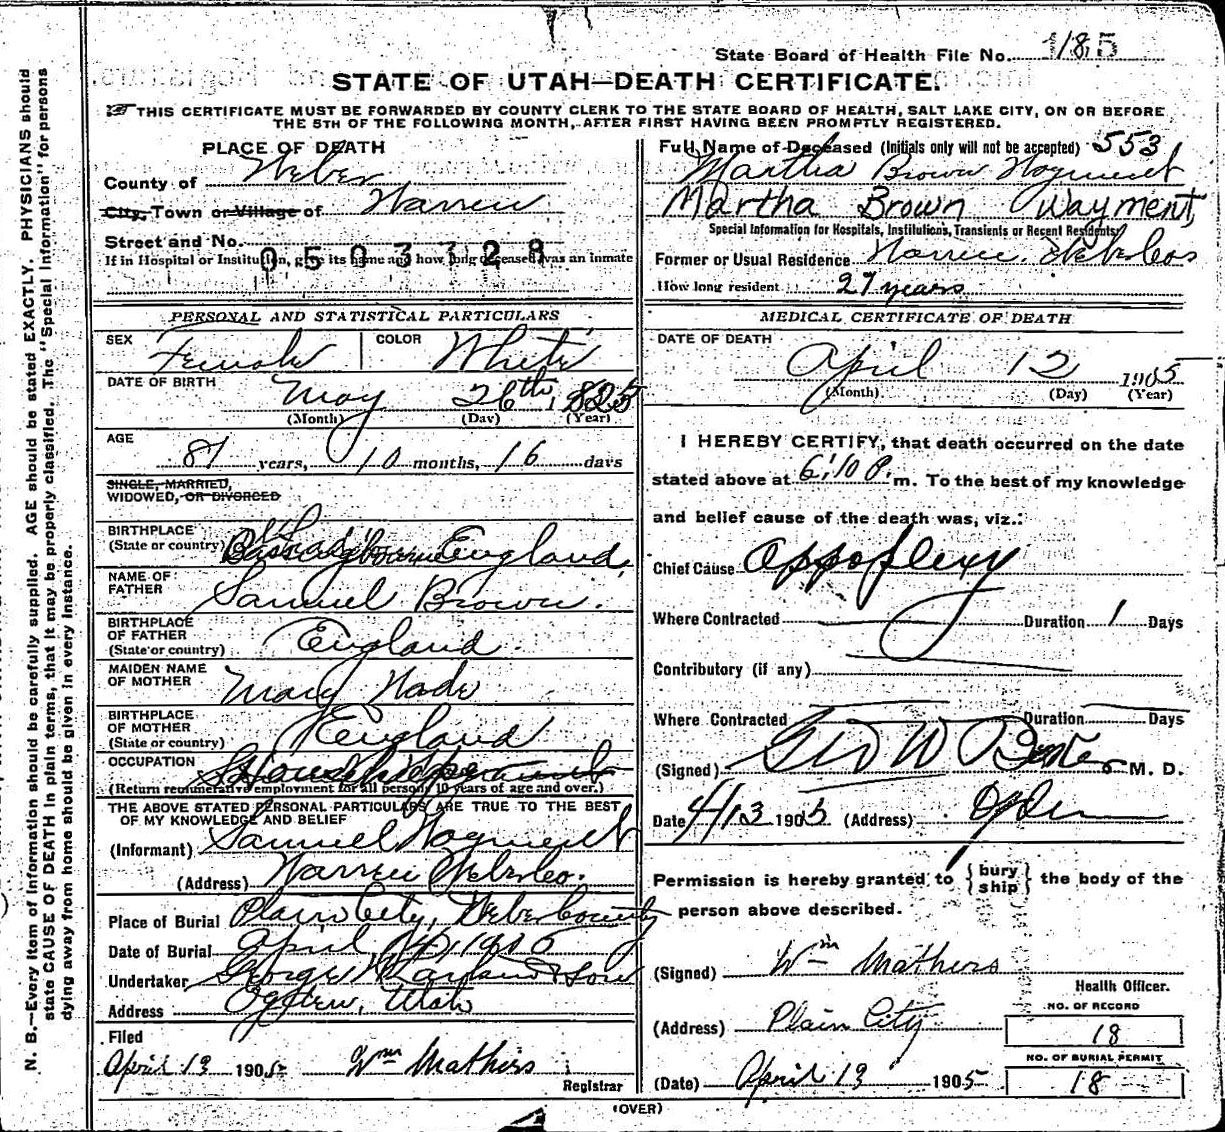 State Board of Health File No. 185
STATE OF UTAH—DEATH CERTIFICATE.
THIS CERTIFICATE MUST BE FORWARDED BY COUNTY CLERK TO THE STATE BOARD OF HEALTH, SALT LAKE CITY, ON OR BEFORE
THE 5TH OF THE FOLLOWING MONTH, AFTER FIRST HAVING BEEN PROMPTLY REGISTERED.
PLACE OF DEATH
County of Weber
City, Town or Village of Warren
Street and No.
0503328
If in Hospital or Institution, give its name and how long deceased was an inmate
PERSONAL AND STATISTICAL PARTICULARS
SEX Female COLOR White
DATE OF BIRTH May 26th, 1825
(Month) (Day) (Year)
AGE
years, 10 months, 16 days
SINGLE, MARRIED,
WIDOWED, OR DIVORCED
BIRTHPLACE
(State or country) England,
NAME OF
FATHER Samuel Brown.
BIRTHPLACE
OF FATHER
(State or country) England.
MAIDEN NAME
OF MOTHER Mary Wade
BIRTHPLACE
OF MOTHER
(State or country) England
OCCUPATION Housekeeper
(Return remunerative employment for all persons 10 years of age and over.)
THE ABOVE STATED PERSONAL PARTICULARS ARE TRUE TO THE BEST
OF MY KNOWLEDGE AND BELIEF
(Informant) Samuel Wayment
(Address) Warren Weber Co.
Place of Burial Plain City, Weber County
Date of Burial April 14, 1905
Undertaker George & Son
Address Ogden, Utah
Filed
April 13 1905 Wm Mathers
Registrar
Full Name of Deceased (Initials only will not be accepted) 553
Martha Brown Wayment
Martha Brown Wayment,
Special Information for Hospitals, Institutions, Transients or Recent Residents
Former or Usual Residence Warren. Weber Co
How long resident 27 years
MEDICAL CERTIFICATE OF DEATH
DATE OF DEATH
April 12 1905
(Month) (Day) (Year)
I HEREBY CERTIFY, that death occurred on the date
stated above at 6:10 P. m. To the best of my knowledge
and belief cause of the death was, viz.:
Chief Cause Appoplexy
Where Contracted Duration 1 Days
Contributory (if any)
Where Contracted Duration Days
(Signed) Geo W Baker M. D.
Date 4/13 1905 (Address) Ogden
Permission is hereby granted to {bury ship} the body of the
person above described.
(Signed) Wm Mathers
Health Officer.
(Address) Plain City
NO. OF RECORD
18
NO. OF BURIAL PERMIT
18
(Date) April 13 1905
(OVER)
N. B.—Every item of Information should be carefully supplied. AGE should be stated EXACTLY. PHYSICIANS should
state CAUSE OF DEATH in plain terms, that it may be properly classified. The "Special Information" for persons
dying away from home should be given in every instance.